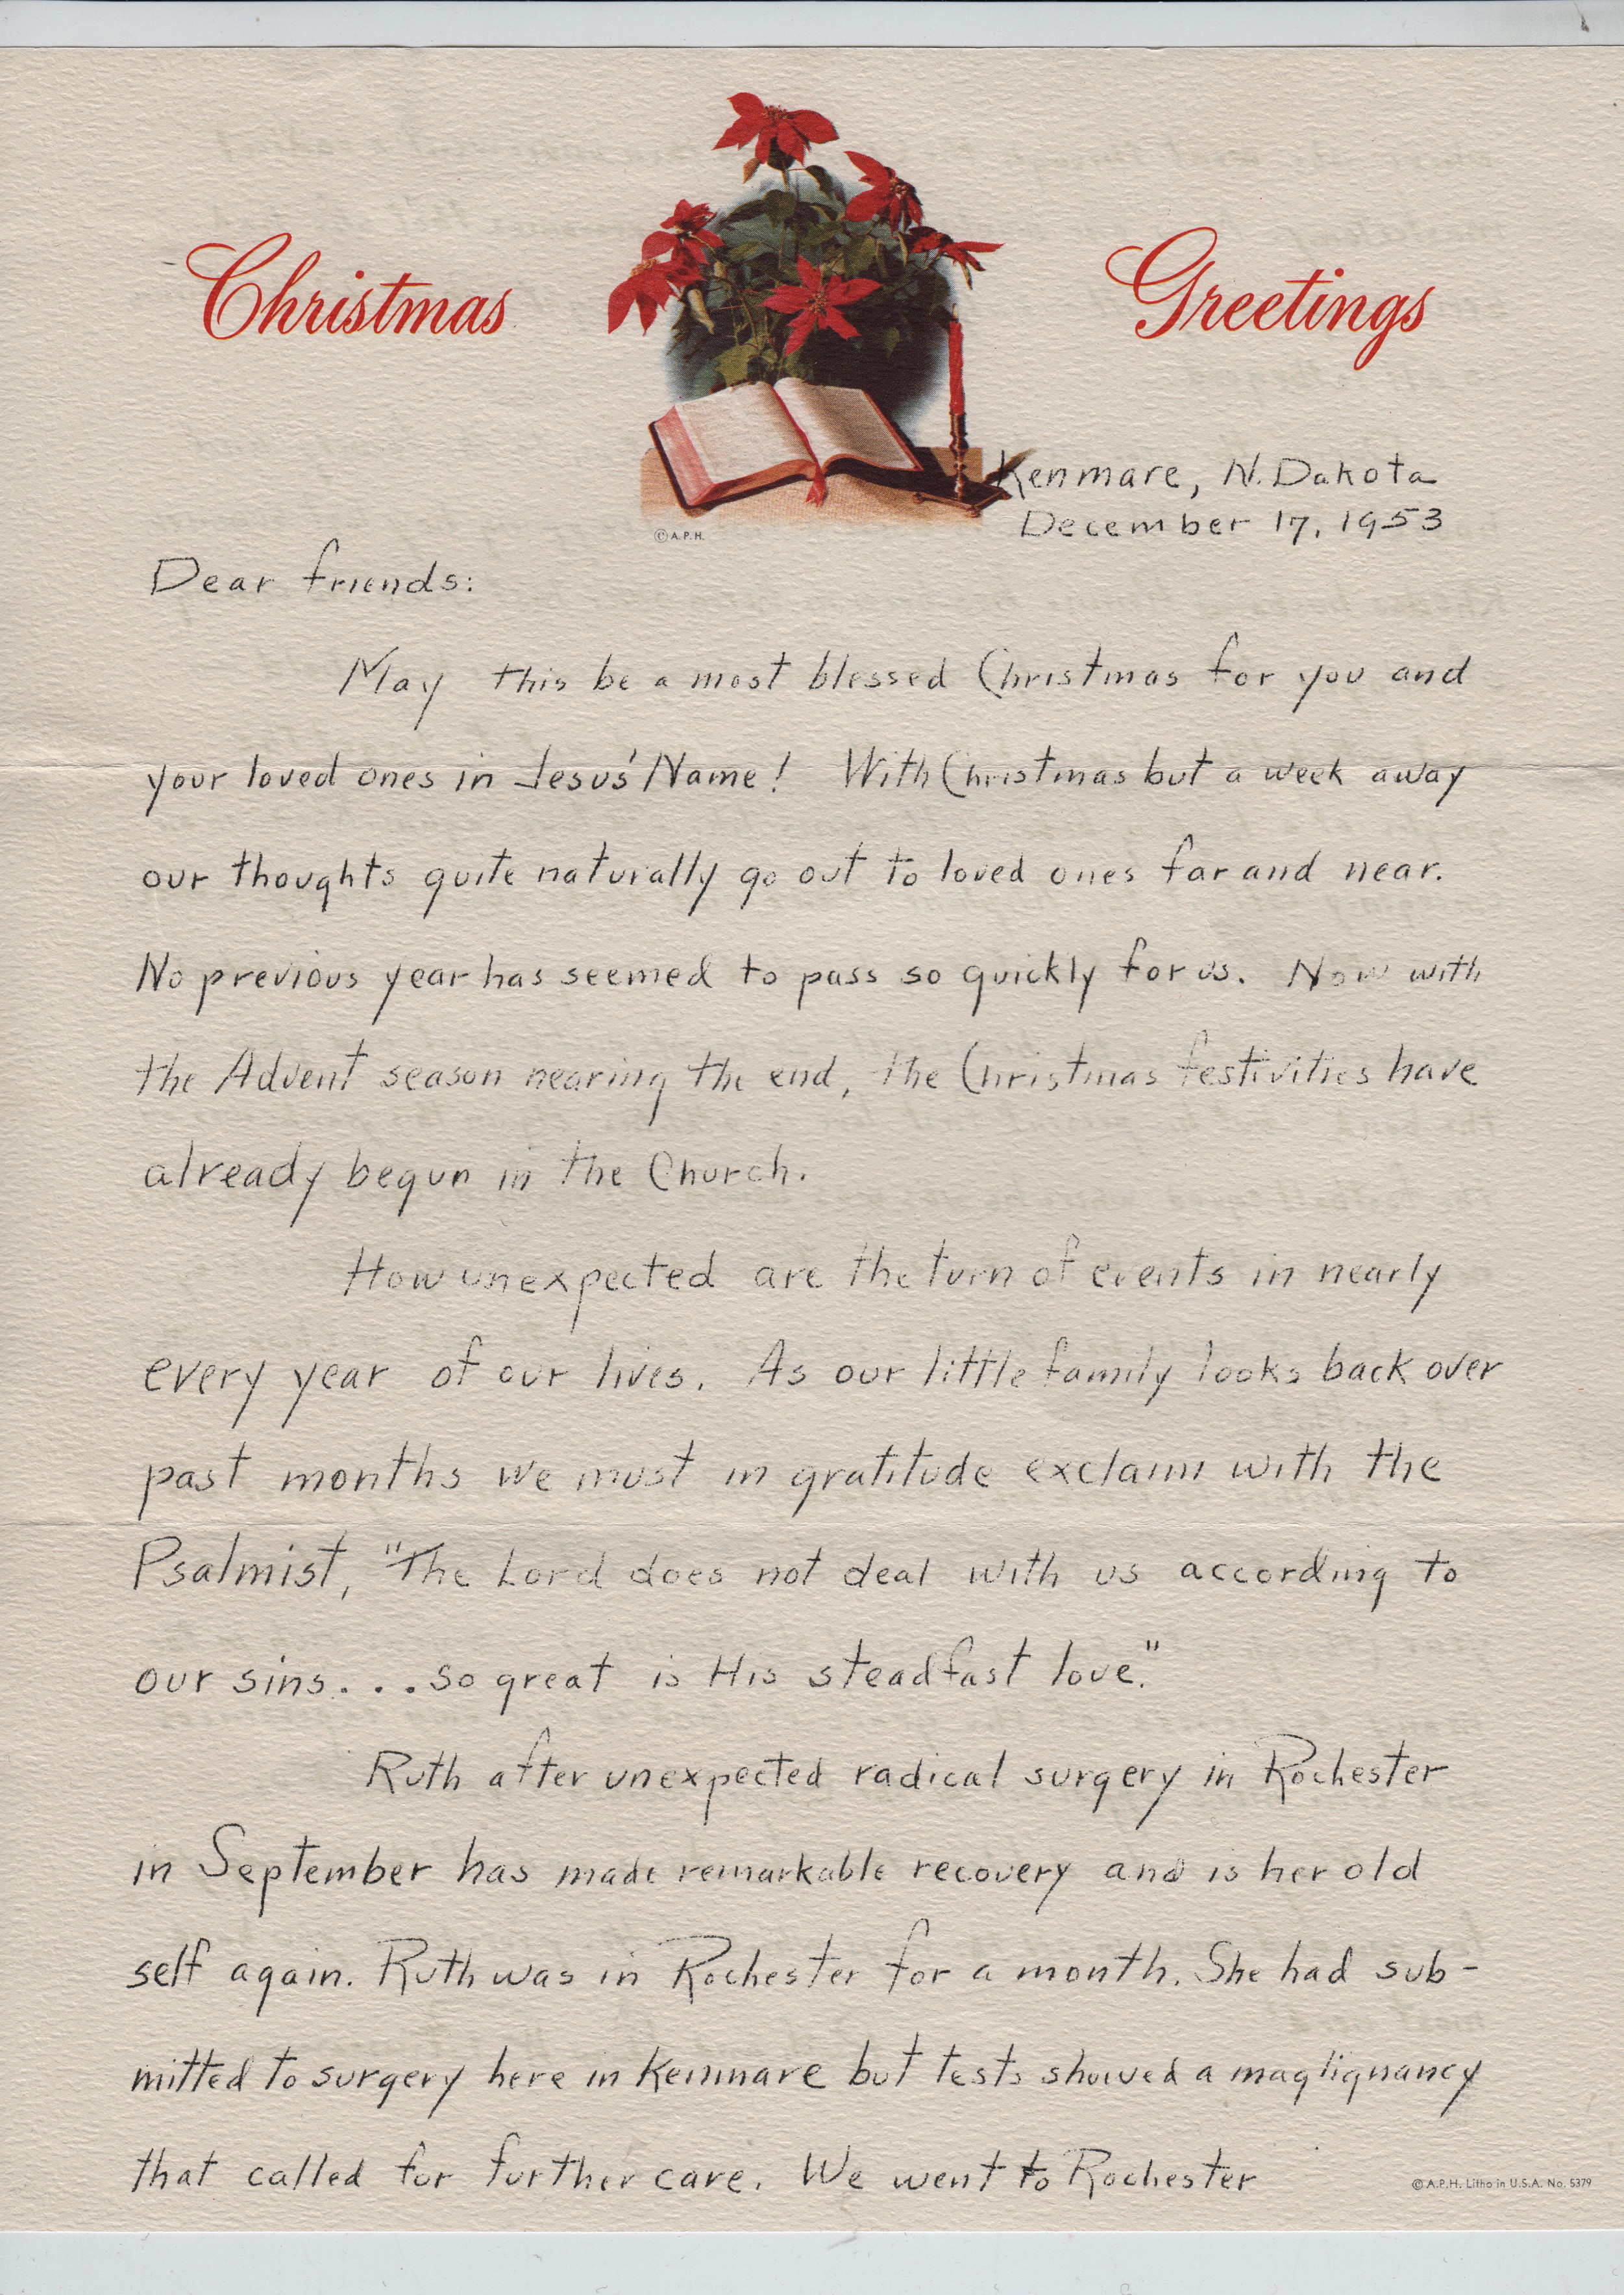 Christmas Greetings
Kenmare, N. Dakota
December 17, 1953
© A.P.H.
Dear friends:
May this be a most blessed Christmas for you and
your loved ones in Jesus' Name! With Christmas but a week away
our thoughts quite naturally go out to loved ones far and near.
No previous year has seemed to pass so quickly for us. Now with
the Advent season nearing the end, the Christmas festivities have
already begun in the Church.
How unexpected are the turn of events in nearly
every year of our lives. As our little family looks back over
past months we must in gratitude exclaim with the
Psalmist, "The Lord does not deal with us according to
our sins. . . so great is His steadfast love."
Ruth after unexpected radical surgery in Rochester
in September has made remarkable recovery and is her old
self again. Ruth was in Rochester for a month. She had sub-
mitted to surgery here in Kenmare but tests showed a maglignancy
that called for further care. We went to Rochester
© A.P.H. Litho in U.S.A. No. 5379